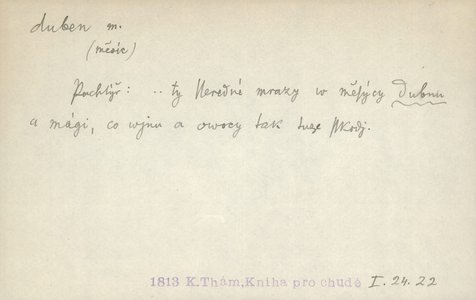 duben m.
(měsíc)
Pachtýř: .. ty Neredné mrazy w měsýcy Dubnu
a mági, co wjnu a owocy tak tuze sskodj.
1813 K.Thám,Kniha pro chudé I.24.22